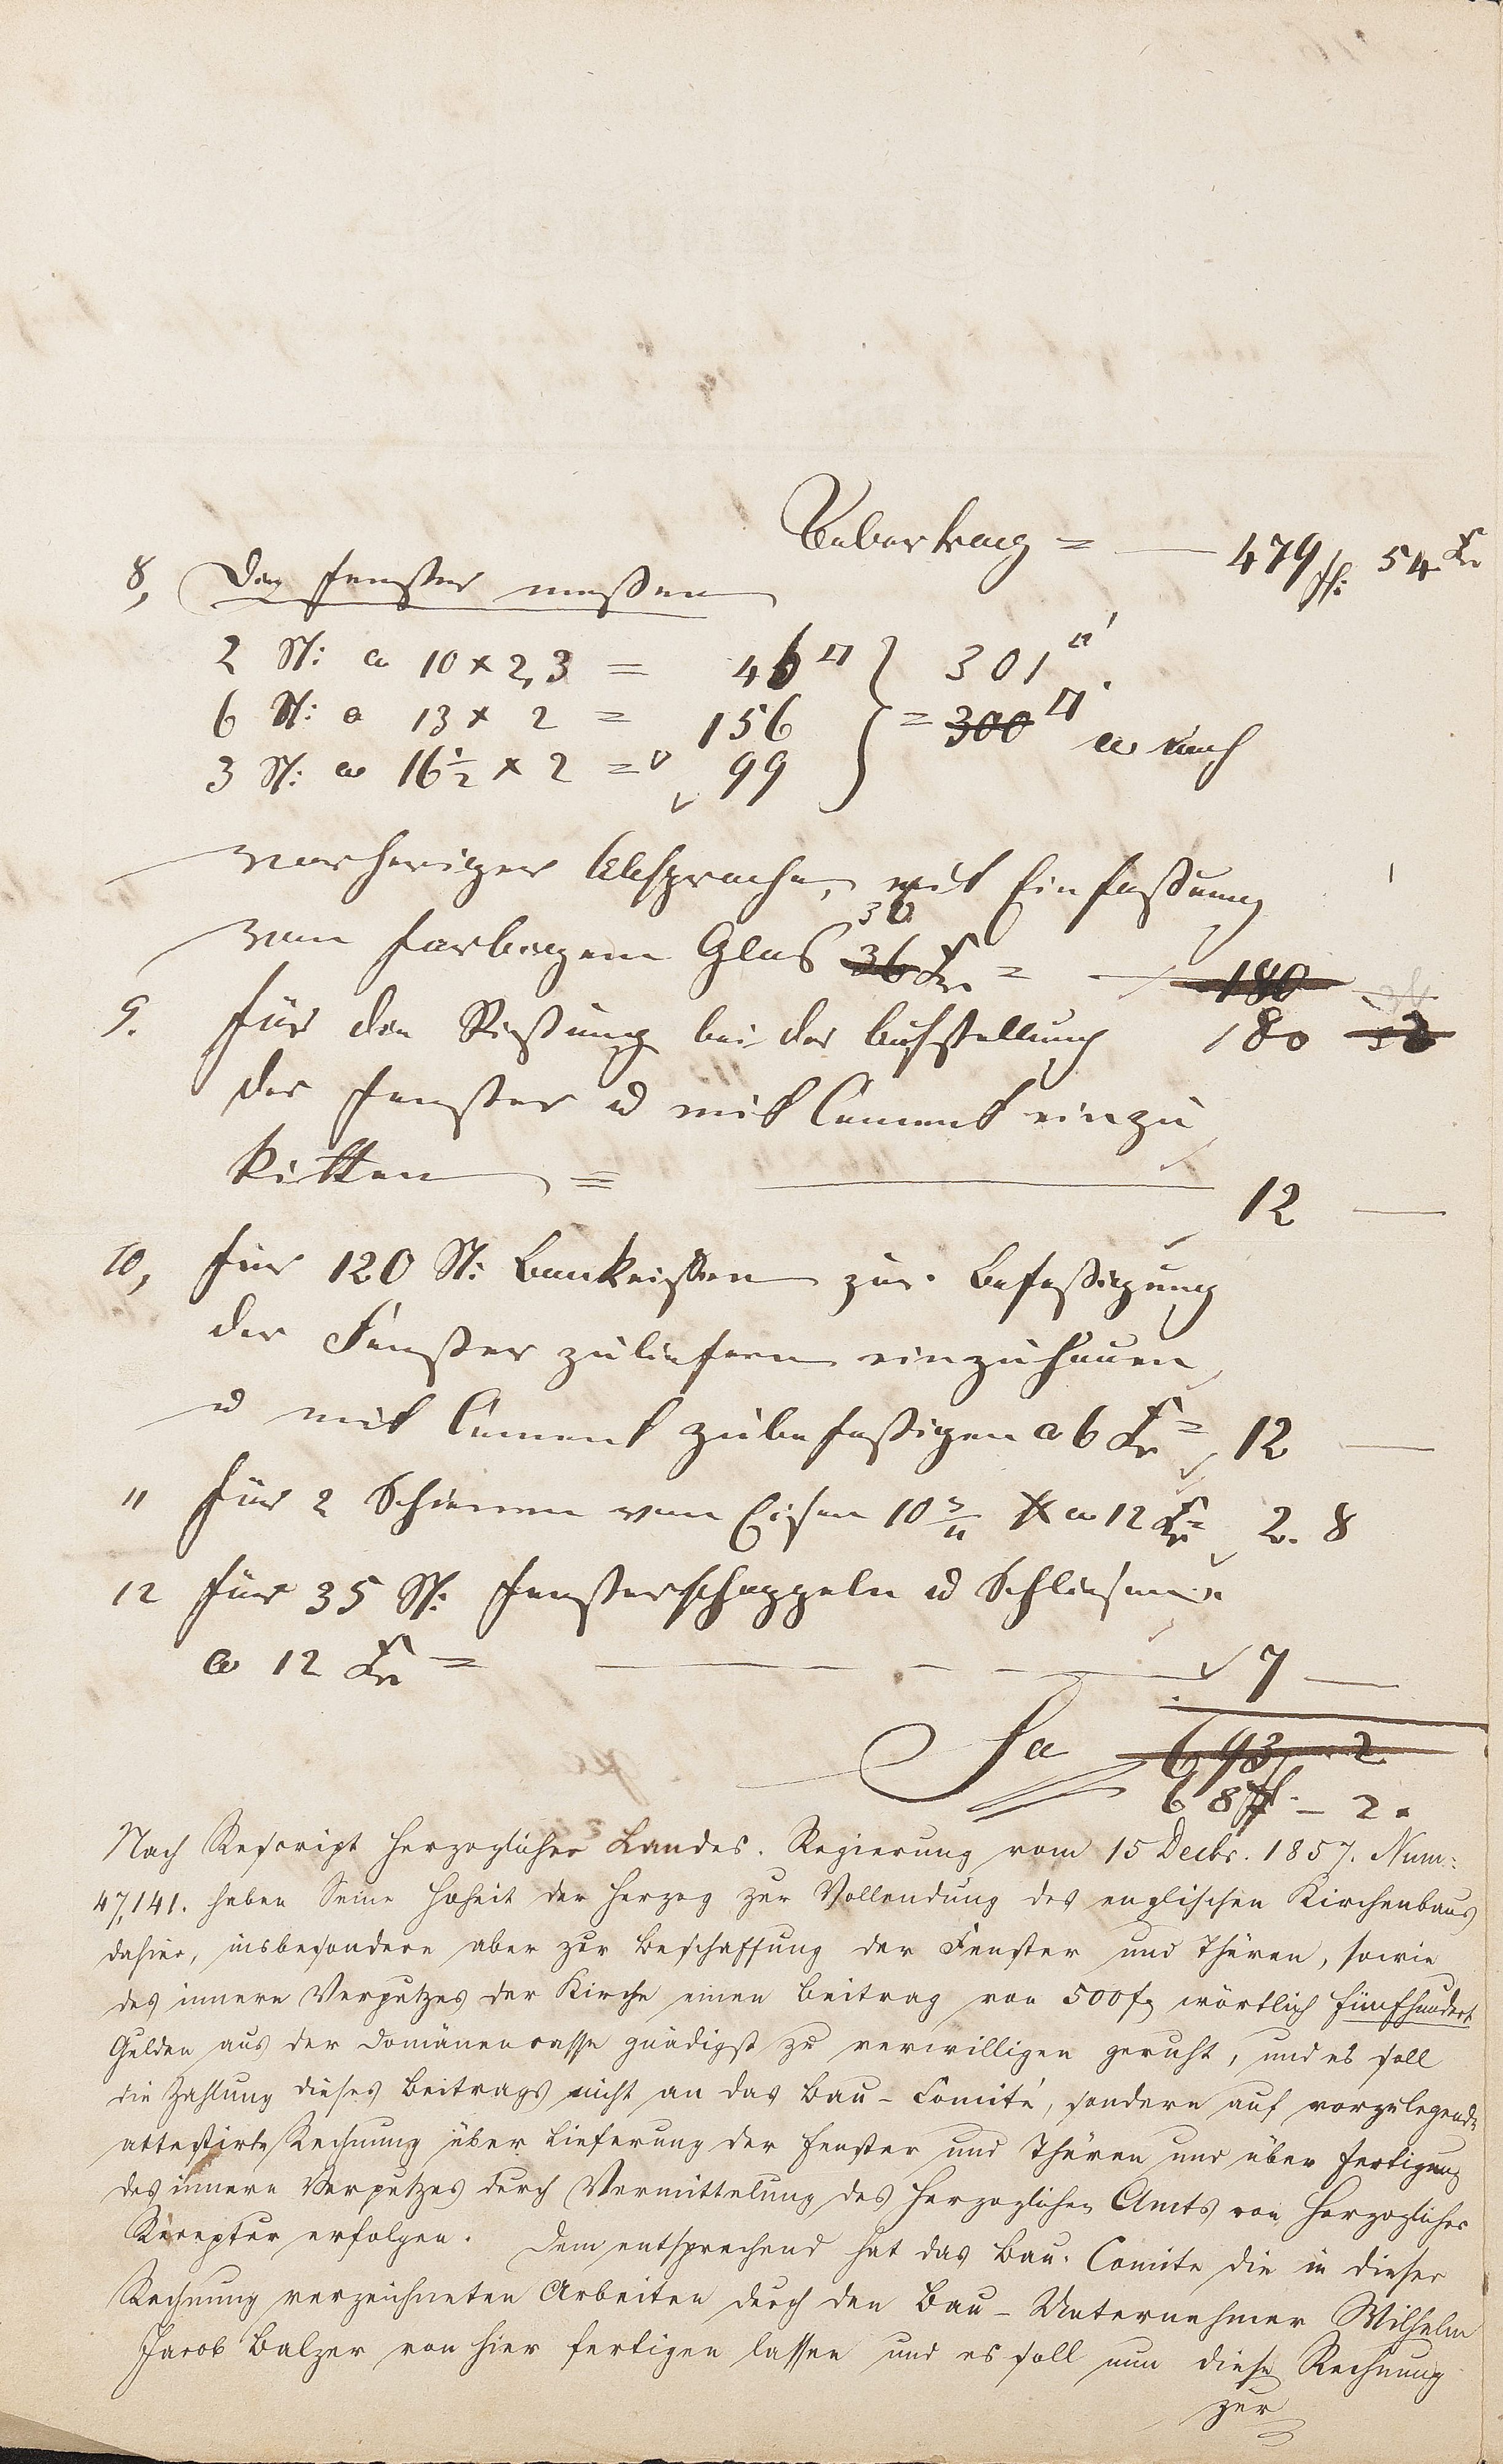 Uebertrag = — 479 fl: 54 Kr
8, Die Fenster meßen
2 St: a 10 x 2,3 = 46 □ } 301 □'
6 St: a 13 x 2 = 156 = 300 □'
3 St: a 16 1/2 x 2 = 99 a nach
vorheriger Absprache, mit Einfaßung
30
von farbigem Glas 36 Kr = — 180 —
9. Für die Rüstung bei der Aufstellung 180
der Fenster u mit Cement einzu
kitten = — 12 —
10, Für 120 St: Bankeisen zur Befestigung
der Fenster zuliefern einzuhauen
u mit Cement zubefestigen a 6 Kr = 12 —
11 Für 2 Schienen von Eisen 10 a 12 Kr = 2. 8
12 Für 35 St: Fensterschappeln u Schliesen
a 12 Kr = — 7 —
Sa 693 2
68 fl. — 2.
Nach Rescript Herzoglicher Landes. Regierung vom 15 Decbr. 1857. Num:
47,141. haben Seine Hoheit der Herzog zur Vollendung des englischen Kirchenbaus
dahier, insbesondere aber zur Beschaffung der Fenster und Thüren, sowie
des innern Verputzes der Kirche einen Beitrag von 500 f, wörtlich fünfhundert
Gulden aus der Domänencasse gnädigst zu verwilligen geruht, und es soll
die Zahlung dieses Beitrags nicht an das Bau-Comité, sondern auf vorzulegende
attestirte Rechnung über Lieferung der Fenster und Thüren und über Fertigung
des innern Verputzes durch Vermittelung des Herzoglichen Amts von Herzoglicher
Receptur erfolgen. Dem entsprechend hat das Bau. Comite die in dieser
Rechnung verzeichneten Arbeiten durch den Bau-Unternehmer Wilhelm
Jacob Balzer von hier fertigen lassen und es soll nun diese Rechnung
zur